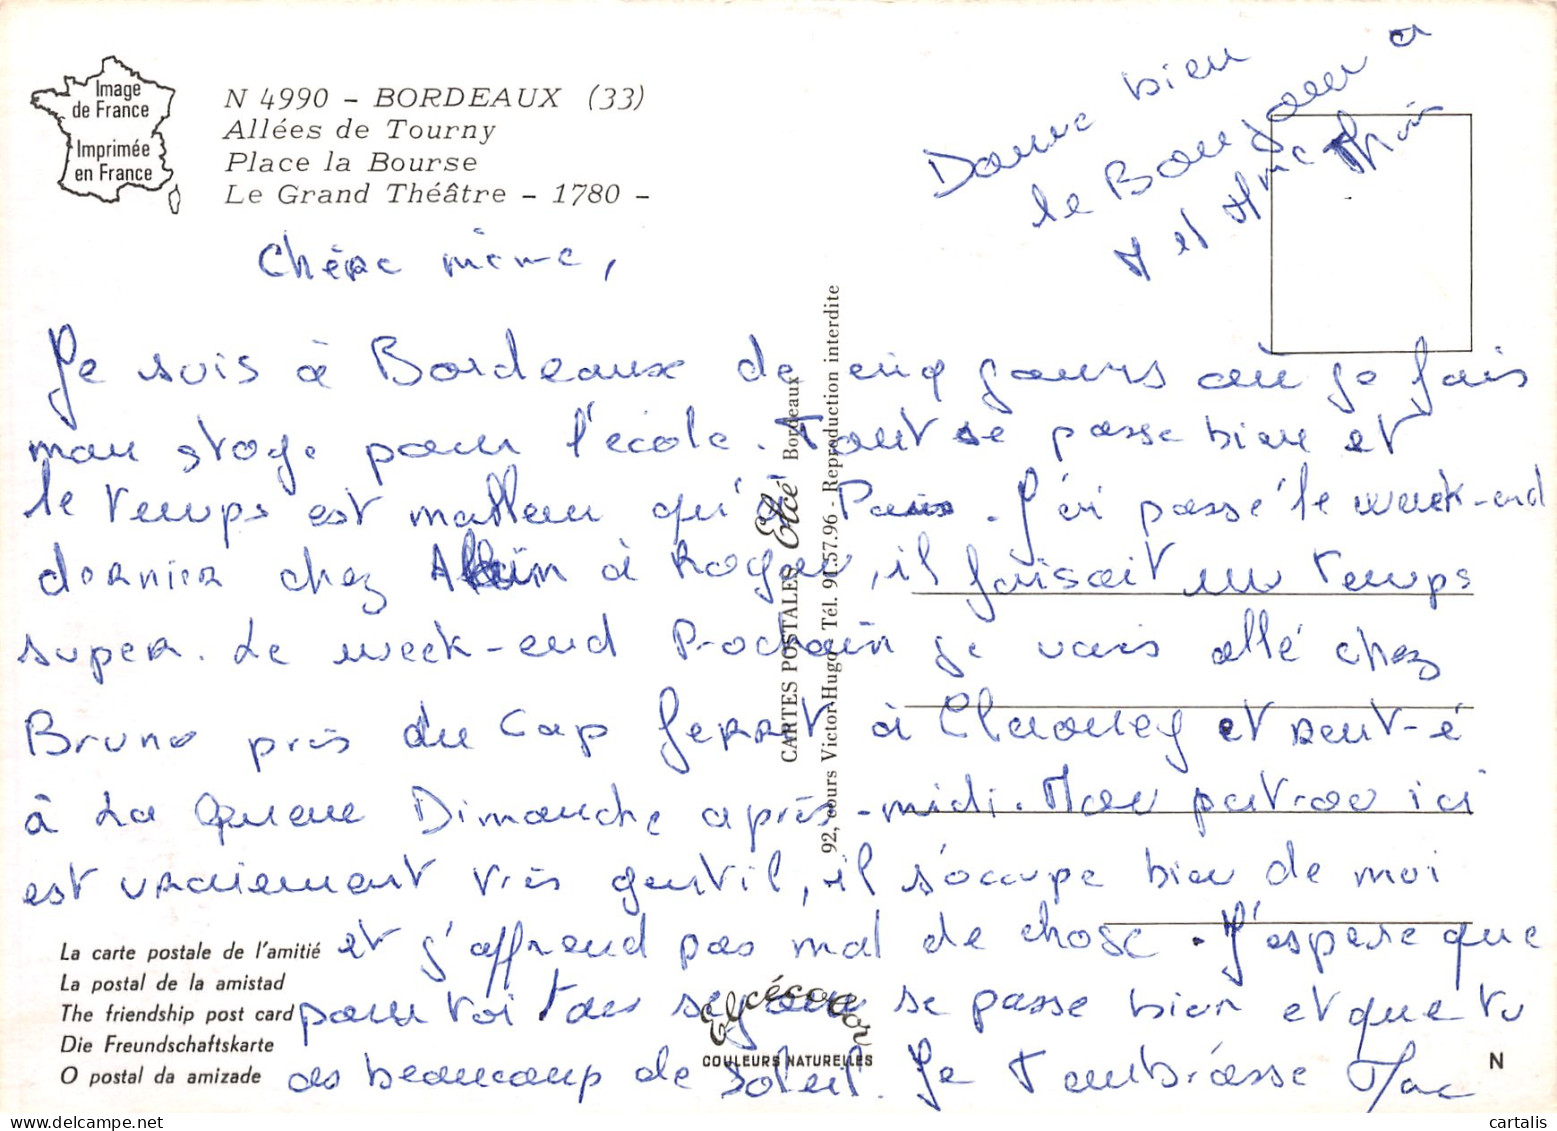 Image
de France
Imprimée
en France
N 4990 - BORDEAUX (33)
Allées de Tourny
Place la Bourse
Le Grand Théâtre - 1780 -
Donne bien
le Bonjour a
et Mme
Chère mème,
Je suis à Bordeaux de cinq jours où je fais
mon stage pour l'école. Tout se passe bien et
le temps est meilleur qu'à Paris. J'ai passé le week-end
dernier chez Alain à Royan, il faisait un temps
super. Le week-end Prochain je vais allé chez
Bruno près du Cap Ferret à Claouey et rent-é
à La Queue Dimanche après-midi. Mon patron ici
est vraiement très gentil, il s'occupe bien de moi
et j'affrend pas mal de chose. J'espere que
pour toi ton sejour se passe bien et que tu
as beaucoup de soleil. Je t'embrásse Marc
CARTES POSTALES Elcé Bordeaux
92, cours Victor-Hugo Tél. 91.57.96 - Reproduction interdite
La carte postale de l'amitié
La postal de la amistad
The friendship post card
Die Freundschaftskarte
O postal da amizade
Elcécolor
COULEURS NATURELLES
N
cartalis